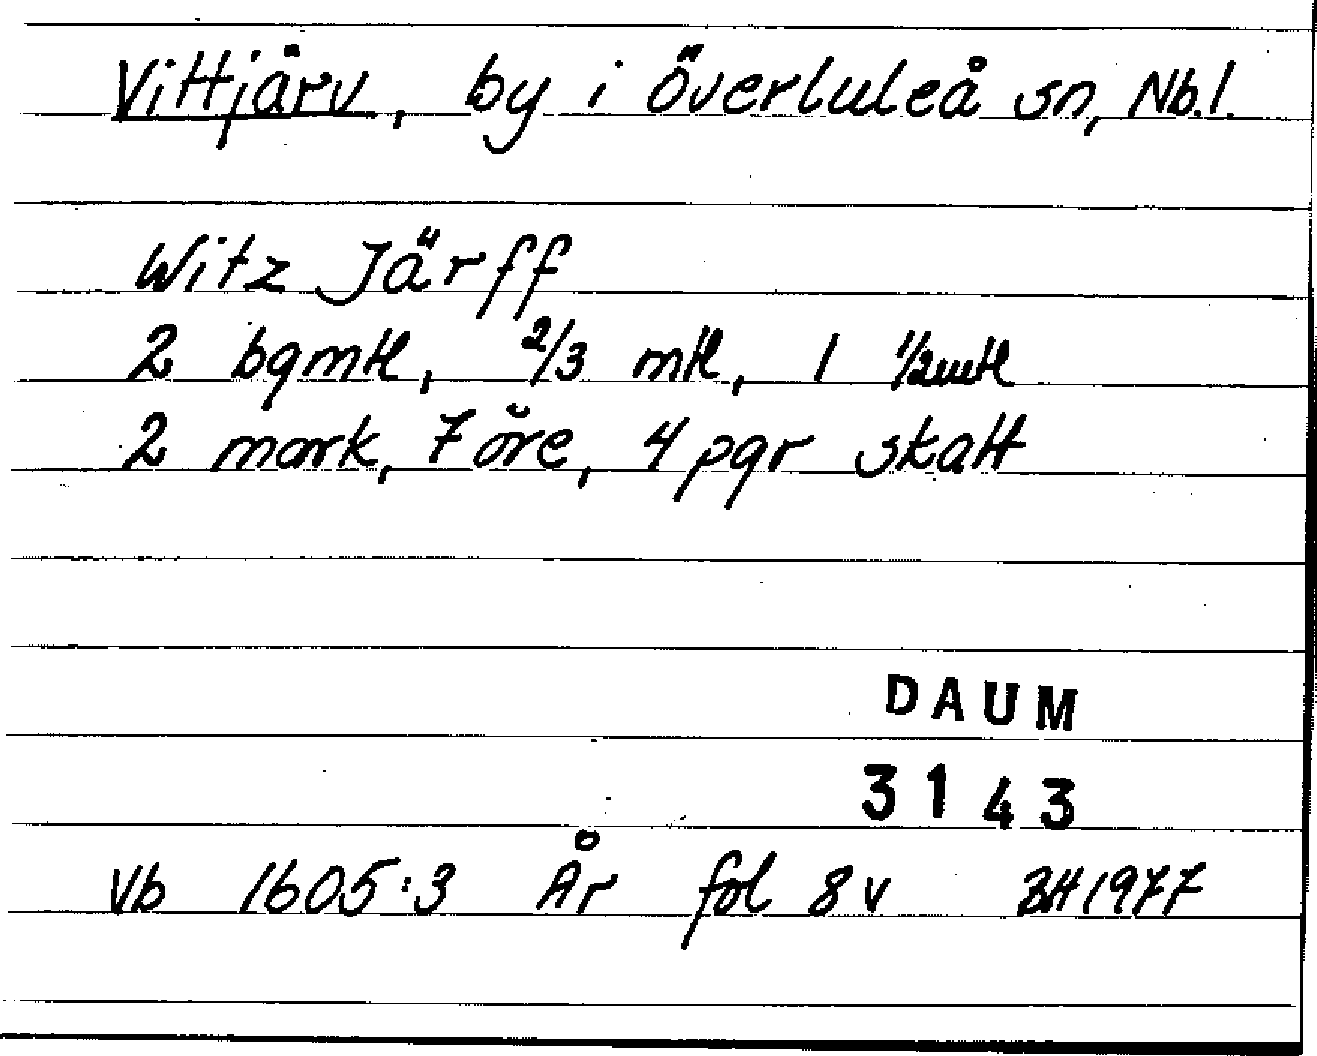 Vittjärv, by i Överluleå sn, Nb.l.
Witz Järff
2 bgmtl, 2/3 mtl, 1 1/2mtl
2 mark, 7 öre, 4 pgr skatt
DAUM
3143
Vb 1605:3 År fol 8v BH 1977